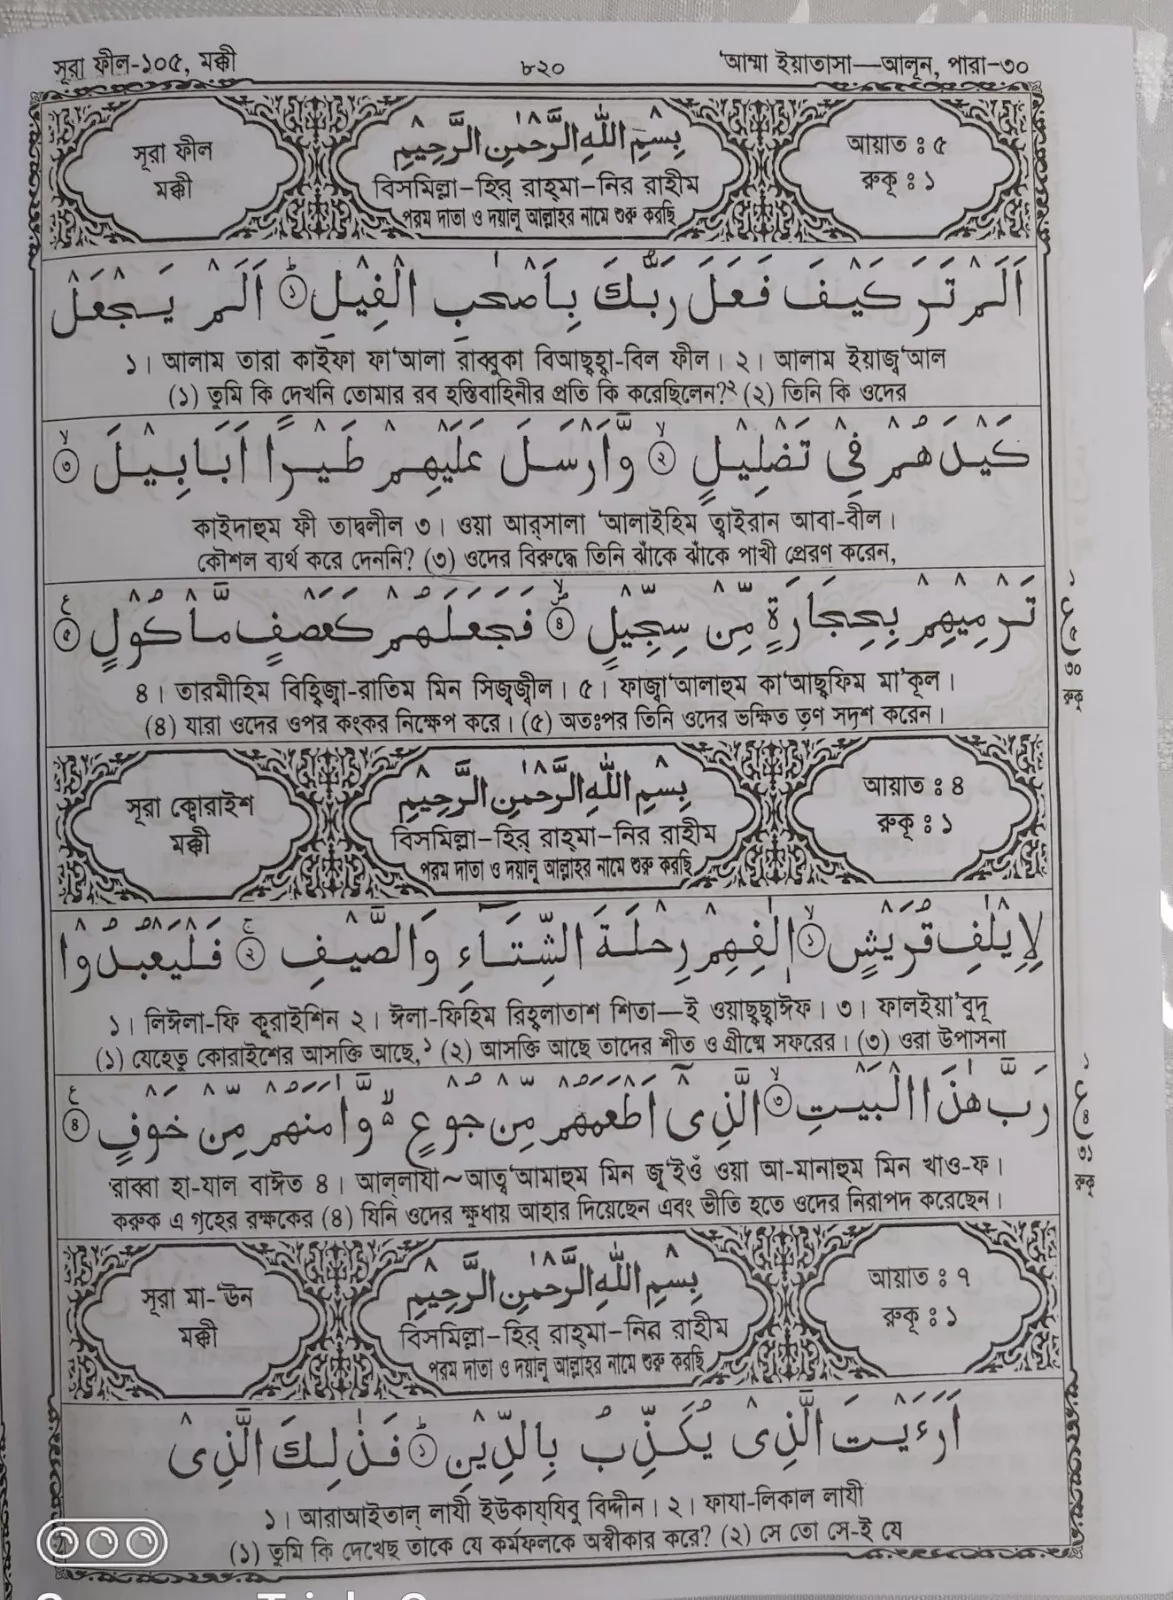 সূরা ফীল-১০৫, মক্কী ৮২০ 'আম্মা ইয়াতাসা—আলূন, পারা-৩০
সূরা ফীল
মক্কী
بِسْمِ اللّٰهِ الرَّحْمٰنِ الرَّحِيْمِ
বিসমিল্লা-হির্ রাহ্মা-নির রাহীম
পরম দাতা ও দয়ালু আল্লাহর নামে শুরু করছি
আয়াত : ৫
রুকূ : ১
اَلَمْ تَرَ كَيْفَ فَعَلَ رَبُّكَ بِاَصْحٰبِ الْفِيْلِ ۝١ اَلَمْ يَجْعَلْ
১। আলাম তারা কাইফা ফা'আলা রাব্বুকা বিআছ্হা-বিল ফীল। ২। আলাম ইয়াজ্'আল
(১) তুমি কি দেখনি তোমার রব হস্তিবাহিনীর প্রতি কি করেছিলেন?২ (২) তিনি কি ওদের
كَيْدَهُمْ فِيْ تَضْلِيْلٍ ۝٢ وَّاَرْسَلَ عَلَيْهِمْ طَيْرًا اَبَابِيْلَ ۝٣
কাইদাহুম ফী তাদ্বলীল ৩। ওয়া আর্সালা 'আলাইহিম ত্বাইরান আবা-বীল।
কৌশল ব্যর্থ করে দেননি? (৩) ওদের বিরুদ্ধে তিনি ঝাঁকে ঝাঁকে পাখী প্রেরণ করেন,
تَرْمِيْهِمْ بِحِجَارَةٍ مِّنْ سِجِّيْلٍ ۝٤ فَجَعَلَهُمْ كَعَصْفٍ مَّاْكُوْلٍ ۝٥
৪। তারমীহিম বিহিজ্বা-রাতিম মিন সিজ্বজ্বীল। ৫। ফাজ্বা'আলাহুম কা'আছ্ফিম মা'কূল।
(৪) যারা ওদের ওপর কংকর নিক্ষেপ করে। (৫) অতঃপর তিনি ওদের ভক্ষিত তৃণ সদৃশ করেন।
রুকূ
সূরা ক্বোরাইশ
মক্কী
بِسْمِ اللّٰهِ الرَّحْمٰنِ الرَّحِيْمِ
বিসমিল্লা-হির্ রাহ্মা-নির রাহীম
পরম দাতা ও দয়ালু আল্লাহর নামে শুরু করছি
আয়াত : ৪
রুকূ : ১
لِاِيْلٰفِ قُرَيْشٍ ۝١ اٖلٰفِهِمْ رِحْلَةَ الشِّتَآءِ وَالصَّيْفِ ۝٢ فَلْيَعْبُدُوْا
১। লিঈলা-ফি ক্বুরাইশিন ২। ঈলা-ফিহিম রিহ্লাতাশ শিতা—ই ওয়াছ্ছাঈফ। ৩। ফালইয়া'বুদূ
(১) যেহেতু কোরাইশের আসক্তি আছে,১ (২) আসক্তি আছে তাদের শীত ও গ্রীষ্মে সফরের। (৩) ওরা উপাসনা
رَبَّ هٰذَا الْبَيْتِ ۝٣ الَّذِيْٓ اَطْعَمَهُمْ مِّنْ جُوْعٍ ۙ وَّاٰمَنَهُمْ مِّنْ خَوْفٍ ۝٤
রাব্বা হা-যাল বাঈত ৪। আল্লাযী~আত্ব'আমাহুম মিন জূ'ইওঁ ওয়া আ-মানাহুম মিন খাও-ফ।
করুক এ গৃহের রক্ষকের (৪) যিনি ওদের ক্ষুধায় আহার দিয়েছেন এবং ভীতি হতে ওদের নিরাপদ করেছেন।
রুকূ
সূরা মা-'ঊন
মক্কী
بِسْمِ اللّٰهِ الرَّحْمٰنِ الرَّحِيْمِ
বিসমিল্লা-হির্ রাহ্মা-নির রাহীম
পরম দাতা ও দয়ালু আল্লাহর নামে শুরু করছি
আয়াত : ৭
রুকূ : ১
اَرَءَيْتَ الَّذِيْ يُكَذِّبُ بِالدِّيْنِ ۝١ فَذٰلِكَ الَّذِيْ
১। আরাআইতাল্ লাযী ইউকায্যিবু বিদ্দীন। ২। ফাযা-লিকাল লাযী
(১) তুমি কি দেখেছ তাকে যে কর্মফলকে অস্বীকার করে? (২) সে তো সে-ই যে